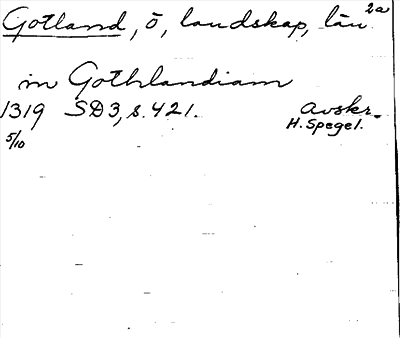 Gotland, ö, landskap, län. 2a
in Gothlandiam
1319 SD3, s. 421. Avskr.
5/10 H. Spegel.